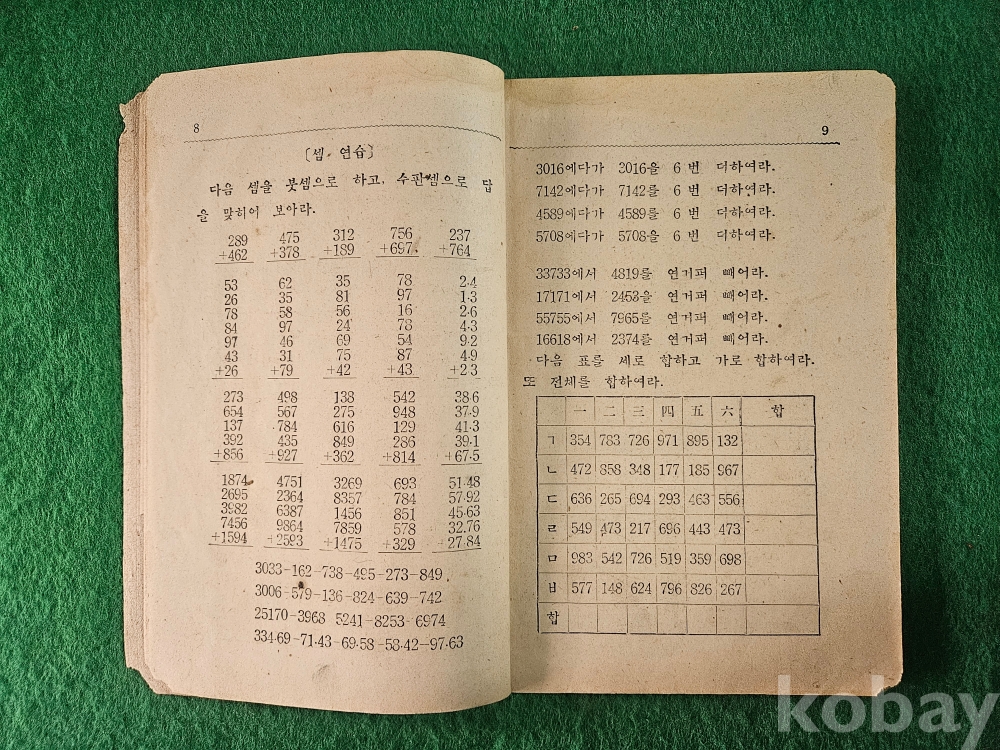 8
〔셈 연습〕
다음 셈을 붓셈으로 하고, 수판셈으로 답
을 맞히어 보아라.
289 475 312 756 237
+462 +378 +189 +697 +764
53 62 35 78 2.4
26 35 81 97 1.3
78 58 56 16 2.6
84 97 24 78 4.3
97 46 69 54 9.2
43 31 75 87 4.9
+26 +79 +42 +43 +2.3
273 498 138 542 38.6
654 567 275 948 37.9
137 784 616 129 41.3
392 435 849 286 39.1
+856 +927 +362 +814 +67.5
1874 4751 3269 693 51.48
2695 2364 8357 784 57.92
3982 6387 1456 851 45.63
7456 9864 7859 578 32.76
+1594 +2593 +1475 +329 +27.84
3033-162-738-495-273-849
3006-579-136-824-639-742
25170-3968 5241-8253-6974
334.69-71.43-69.58-58.42-97.63
9
3016에다가 3016을 6 번 더하여라.
7142에다가 7142를 6 번 더하여라.
4589에다가 4589를 6 번 더하여라.
5708에다가 5708을 6 번 더하여라.
33733에서 4819를 연거퍼 빼어라.
17171에서 2453을 연거퍼 빼어라.
55755에서 7965를 연거퍼 빼어라.
16618에서 2374를 연거퍼 빼어라.
다음 표를 세로 합하고 가로 합하여라.
또 전체를 합하여라.
一 二 三 四 五 六 합
ㄱ 354 783 726 971 895 132
ㄴ 472 858 348 177 185 967
ㄷ 636 265 694 293 463 556
ㄹ 549 473 217 696 443 473
ㅁ 983 542 726 519 359 698
ㅂ 577 148 624 796 826 267
합
kobay